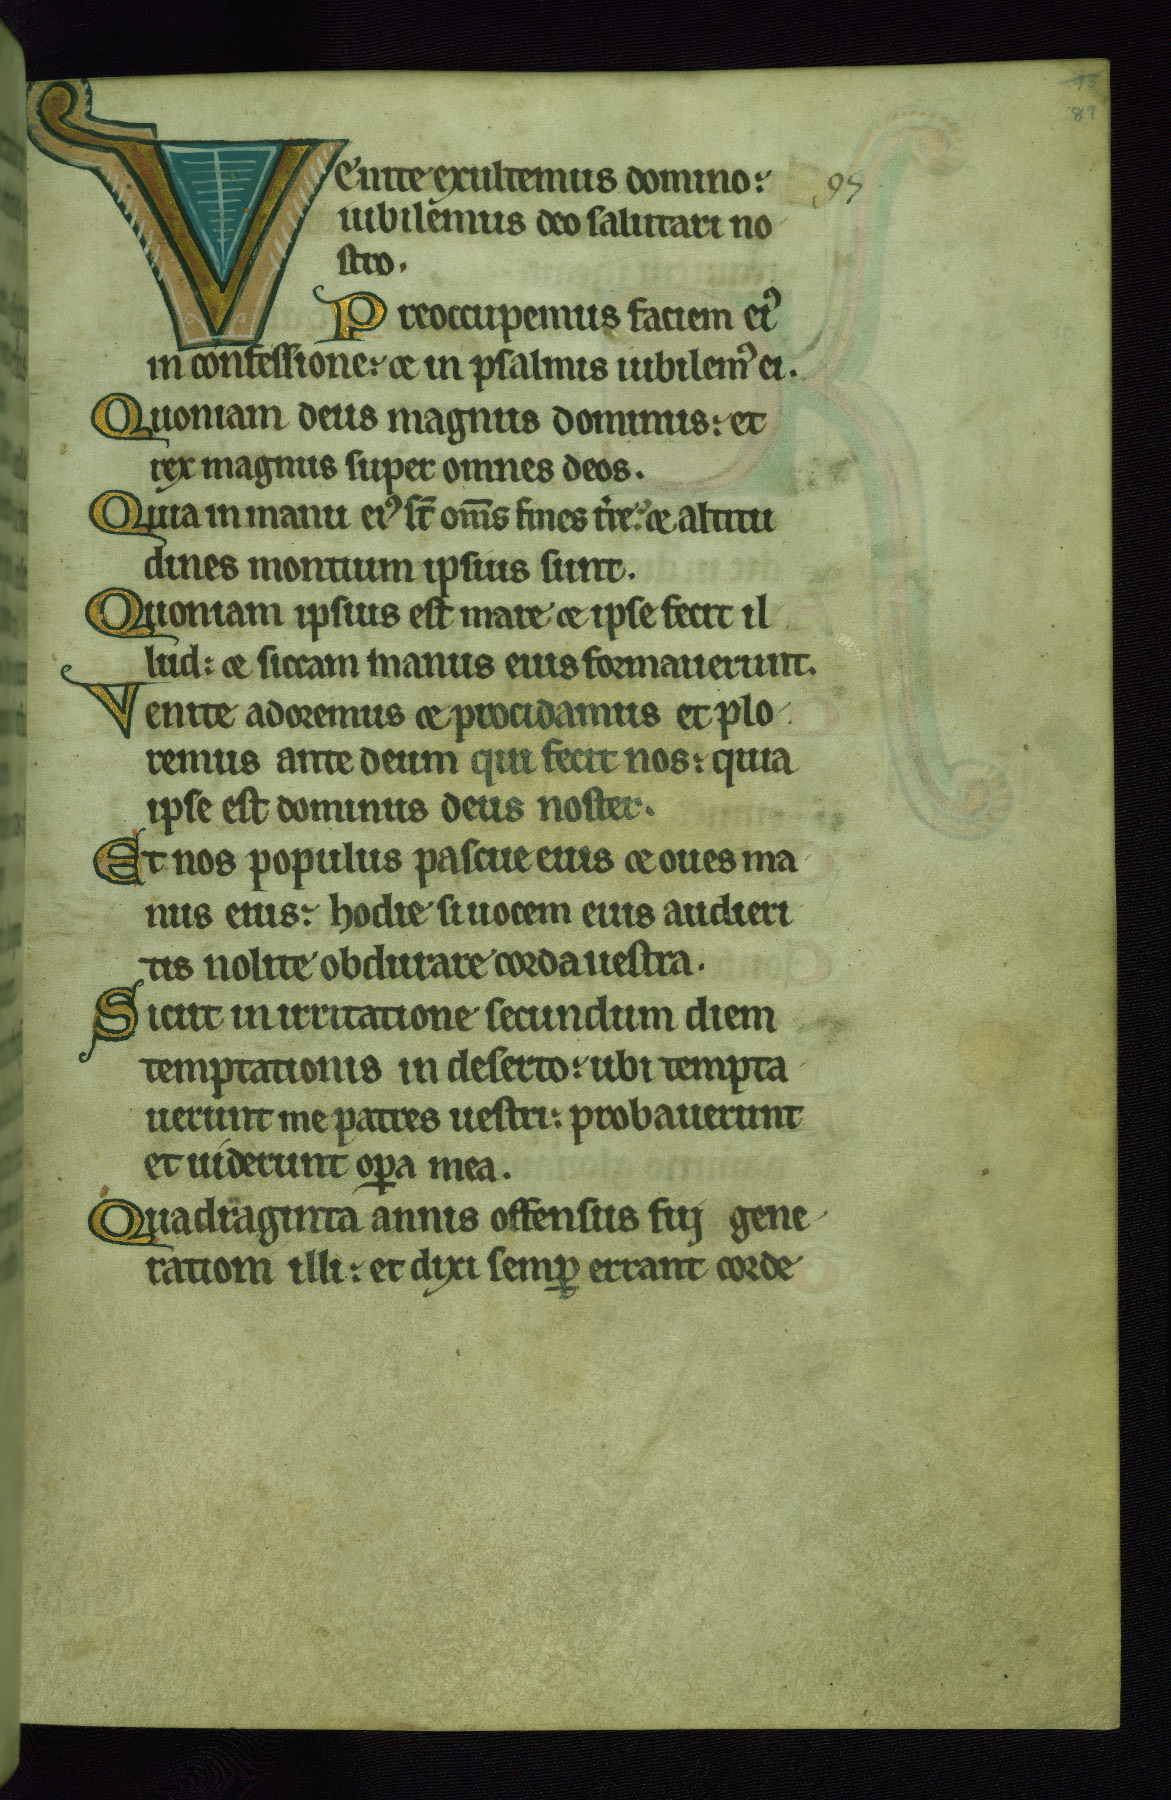 95
89
Venite exultemus domino: 95
iubilemus deo salutari no
stro.
Preoccupemus faciem ei⁹
in confessione: ⁊ in psalmis iubilem⁹ ei.
Quoniam deus magnus dominus: et
rex magnus super omnes deos.
Quia in manu ei⁹ st̄ om̄s fines tr̄e: ⁊ altitu
dines montium ipsius sunt.
Quoniam ipsius est mare ⁊ ipse fecit il
lud: ⁊ siccam manus eius formauerunt.
Venite adoremus ⁊ procidamus et plo
remus ante deum qui fecit nos: quia
ipse est dominus deus noster.
Et nos populus pascue eius ⁊ oues ma
nus eius: hodie si uocem eius audieri
tis nolite obdurare corda uestra.
Sicut in irritatione secundum diem
temptationis in deserto: ubi tempta
uerunt me patres uestri: probauerunt
et uiderunt oꝑa mea.
Quadraginta annis offensus fuj gene
rationi illi: et dixi semꝑ errant corde